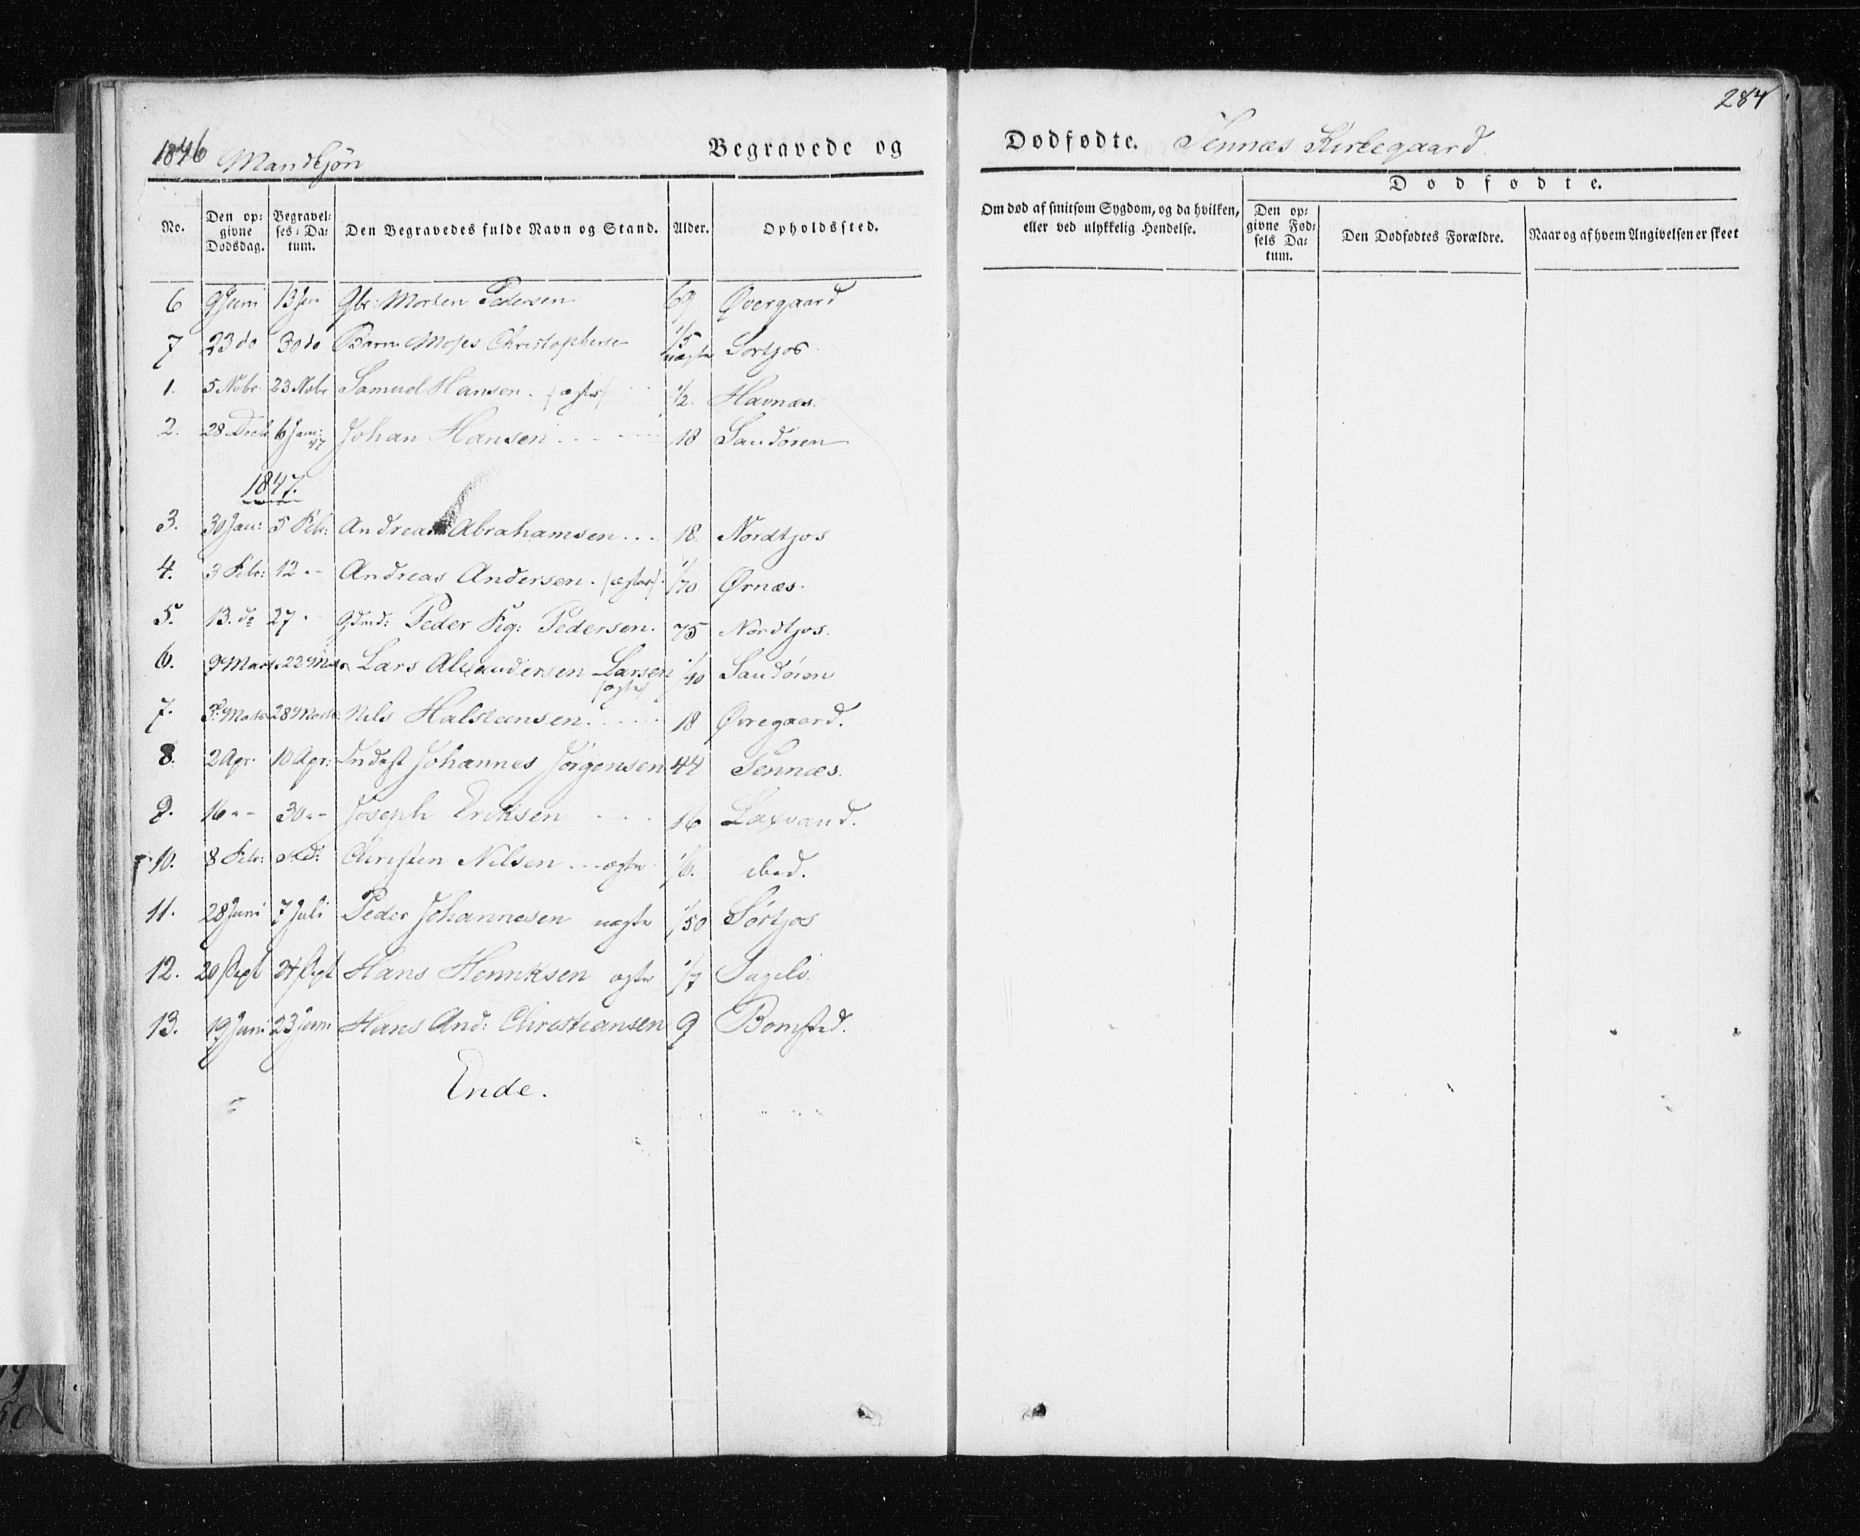 284
1846 Mandkjøn Begravede og Dødfødte. Tennæs Kirkegaard
Dødfødte.
No. Den opgivne Dødsdag. Begravelses-Datum. Den Begravedes fulde Navn og Stand. Alder. Opholdssted. Om død af smitsom Sygdom, og da hvilken, eller ved ulykkelig Hendelse. Den opgivne Fødsels Datum. Den Dødfødtes Forældre. Naar og af hvem Angivelsen er skeet
6 9 Juni 13 Jun Gbr: Morten Pedersen 69 Øvergaard
7 23 do 30 do Barn Moses Christophersen 1/5 uægte Sortjos
1. 5 Nobr 23 Nobr Samuel Hansen. (ægte) 1/2. Havnæs.
2. 28 Decb 6 Jan: 47 Johan Hansen 18 Sandøren
1847.
3. 30 Jan: 5 Feb: Andreas Abrahamsen 18. Nordtjos
4. 3 Febr: 12 - Andreas Andersen. (ægte) 1/70 Ørnæs.
5. 13. do 27 - Gdmd: Peder Fig: Pedersen. 75 Nordtjos.
6. 9 Marts 22 Marts Lars Alexandersen Larsen (ægte) 1/40 Sandøren
7. Marts 28 Marts Nils Halstensen 18 Øvregaard.
8. 2 Apr. 10 Apr: Inderst Johannes Jörgensen 44 Tennæs.
9. 16 - 30 - Joseph Eriksen 16 Laxvand.
10. 8 Febr: s.d: Christen Nilsen ægte 1/6. ibid.
11. 28 Juni 7 Juli Peder Johannesen uægte 1/50 Sørtjos
12. 20 Sept 24 Sept Hans Henriksen ægte 1/7
13. 19 Juni 23 Juni Hans And: Christiansen 9 Bomstad.
Ende.